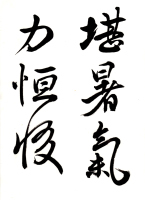 堪暑氣
力恒後